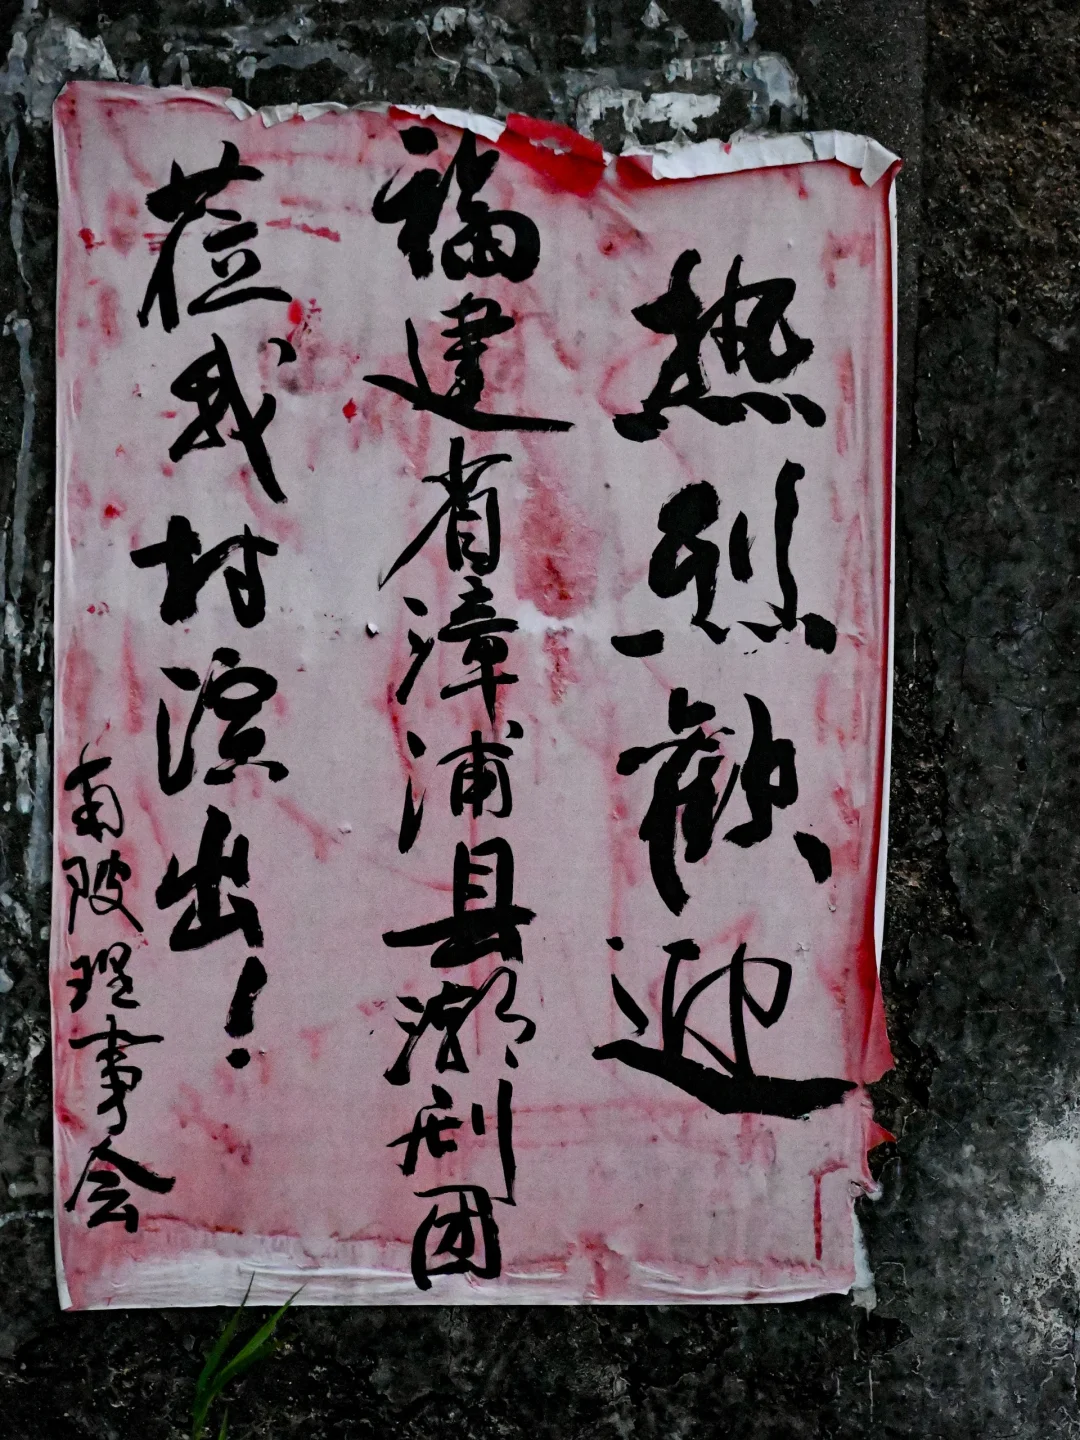 热烈歡迎
福建省漳浦县潮剧团
莅我村演出！
南陂理事会